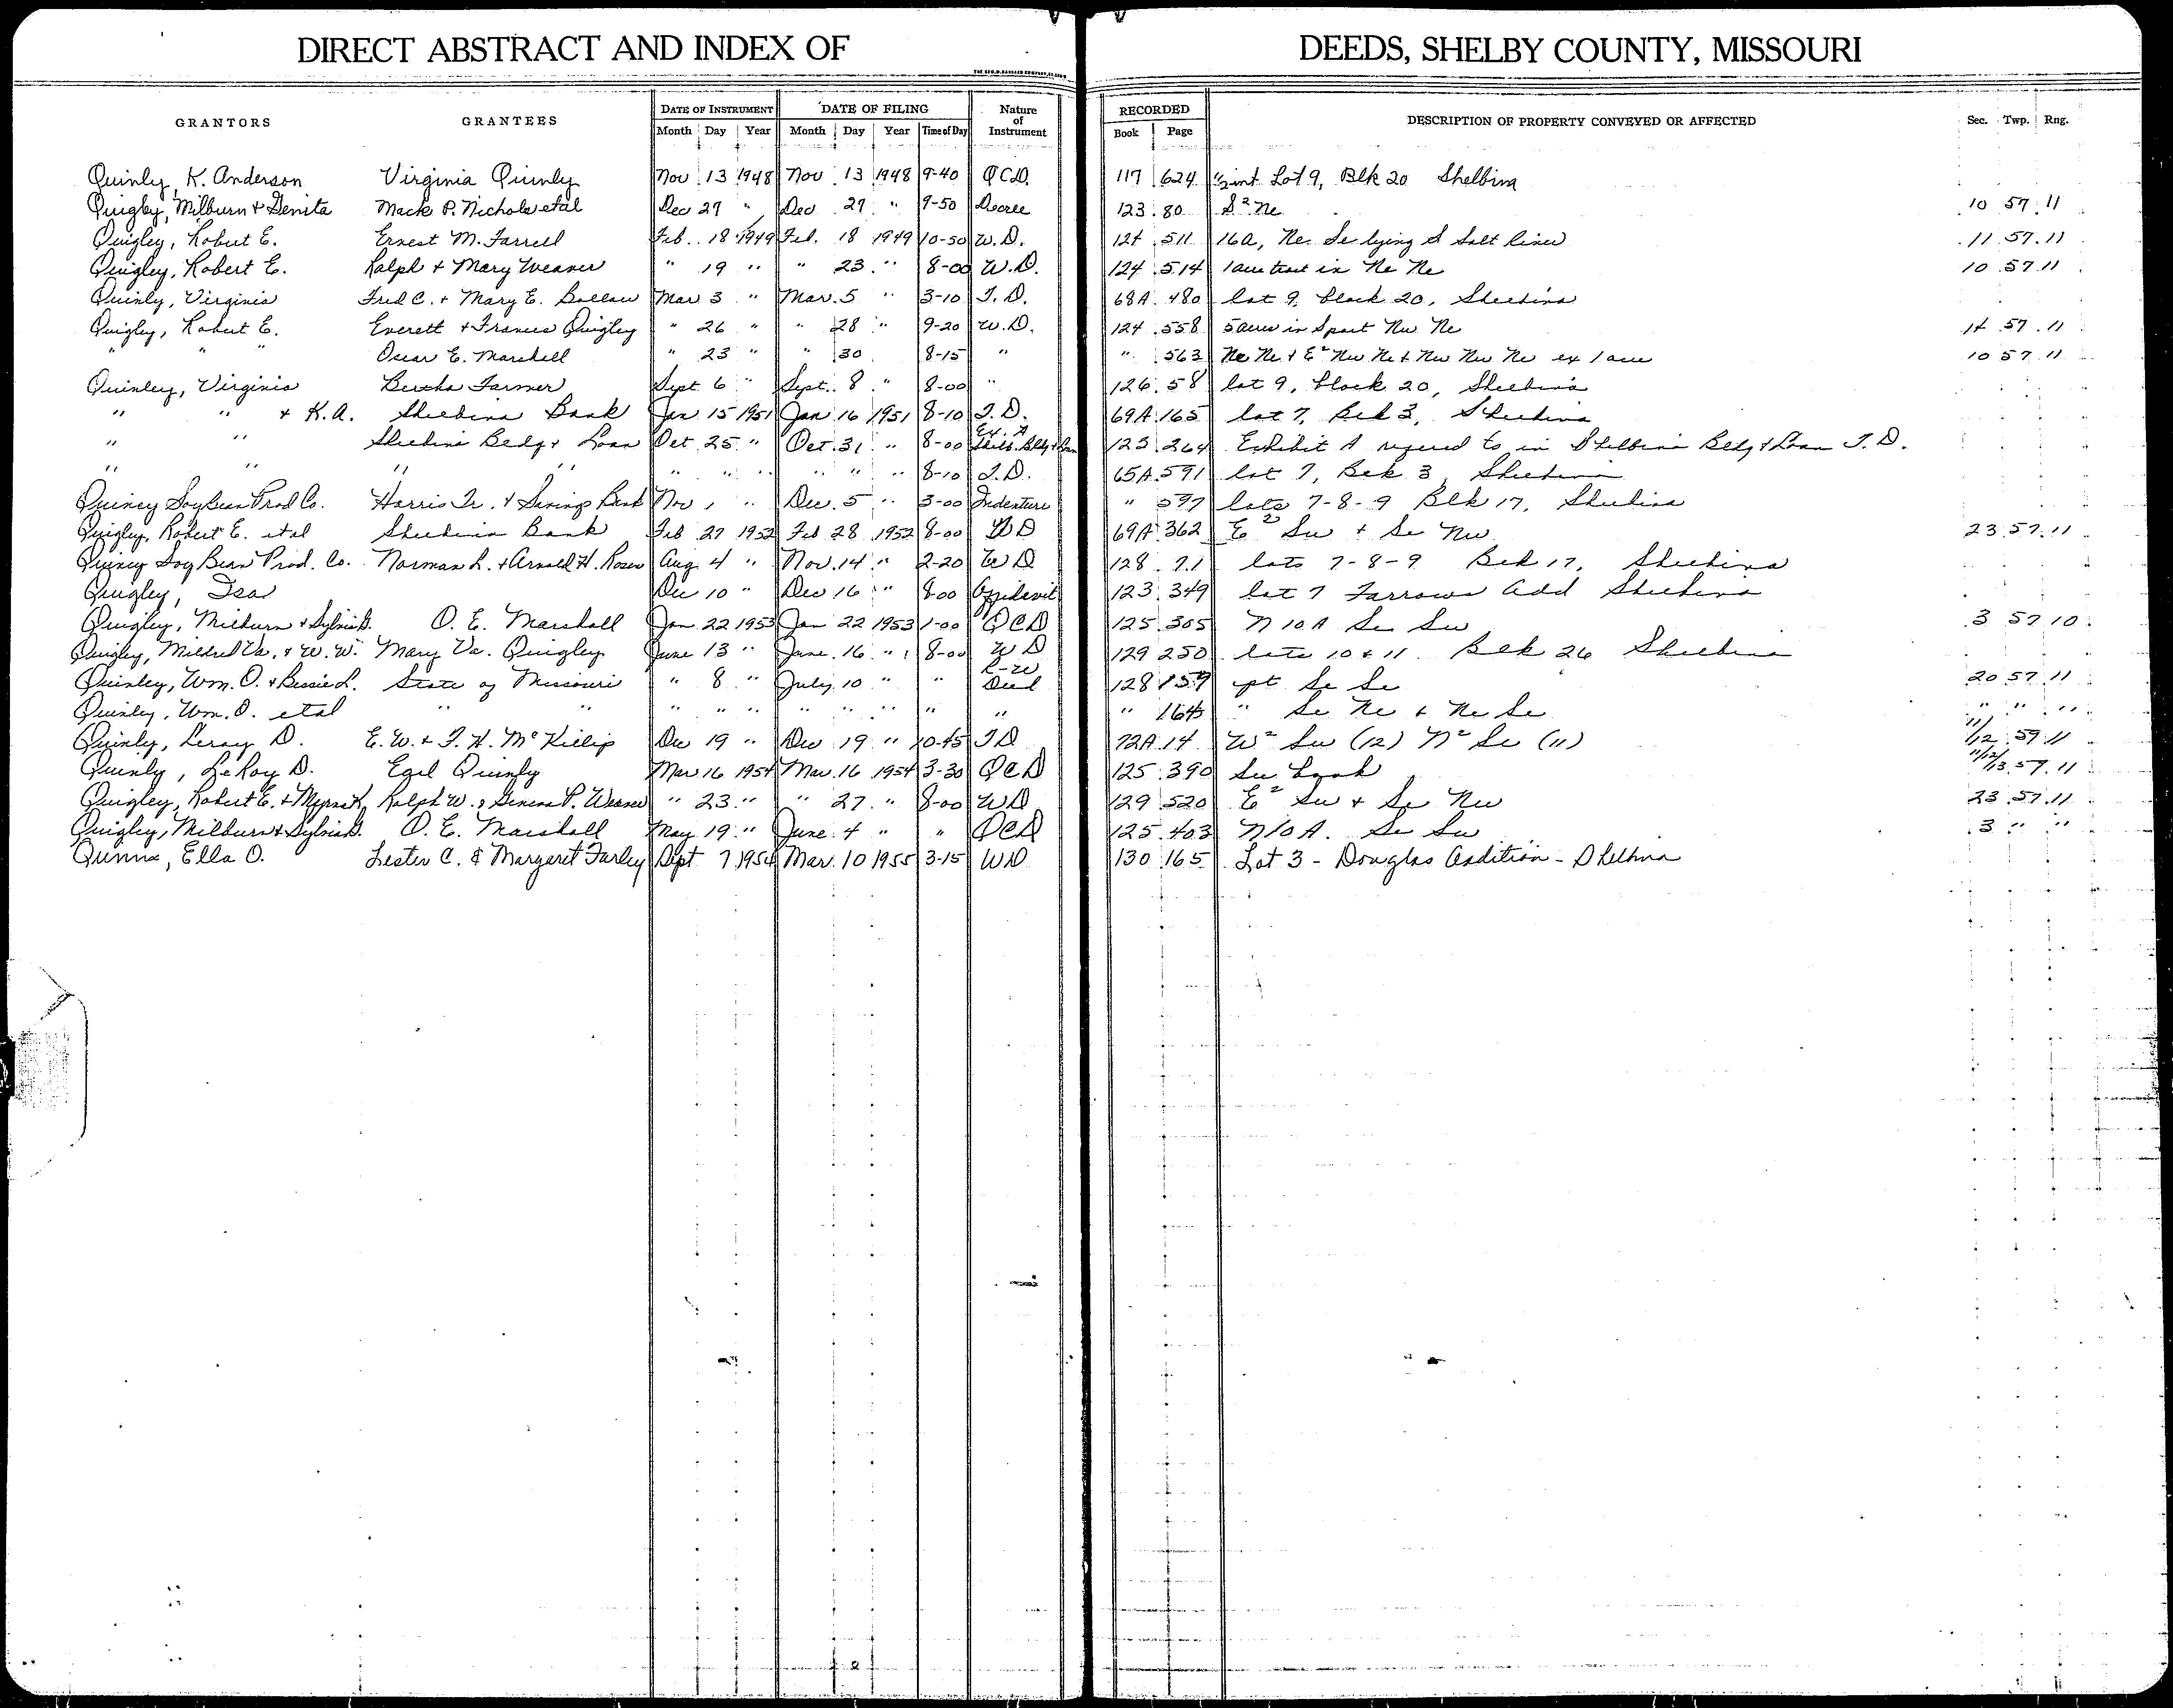 DIRECT ABSTRACT AND INDEX OF DEEDS, SHELBY COUNTY, MISSOURI
GRANTORS GRANTEES DATE OF INSTRUMENT DATE OF FILING Nature of Instrument RECORDED DESCRIPTION OF PROPERTY CONVEYED OR AFFECTED Sec. Twp. Rng.
Month Day Year Month Day Year Time of Day Book Page
Quinly, K. Anderson Virginia Quinly Nov 13 1948 Nov 13 1948 9-40 QCD. 117 624 Lot 9, Blk 20 Shelbina
Quigley, Milburn + Denita Mack P. Nichols etal Dec 27 " Dec 27 " 9-50 Decree 123 80 S² Ne 10 57 11
Quigley, Robert E. Ernest M. Farrell Feb. 18 1949 Feb. 18 1949 10-50 W.D. 124 511 16a, Ne Se lying S Salt River 11 57 11
Quigley, Robert E. Ralph + Mary Weaver " 19 " " 23 " 8-00 W.D. 124 514 1 acre tract in Ne Ne 10 57 11
Quinly, Virginia Fred C. + Mary E. Mar 3 " Mar. 5 " 3-10 T.D. 68A 480 lot 9, block 20, Shelbina
Quigley, Robert E. Everett + Frances Quigley " 26 " " 28 " 9-20 W.D. 124 558 5 acres in S part Nw Ne 14 57 11
" " " Oscar E. Marshall " 23 " " 30 8-15 " " 563 Ne Ne + E² Nw Ne + Nw Nw Ne ex 1 acre 10 57 11
Quinley, Virginia Bertha Farmer Sept 6 " Sept. 8 " 8-00 " 126 58 lot 9, block 20, Shelbina
" " + K.A. Shelbina Bank Jan 15 1951 Jan 16 1951 8-10 T.D. 69A 165 lot 7, Blk 3, Shelbina
" " Shelbina Bldg + Loan Oct. 25 " Oct. 31 " 8-00 Ex. A Shelb. Bldg + Loan 123 264 Exhibit A referred to in Shelbina Bldg + Loan T.D.
" " " " " " " " " " 8-10 T.D. 65A 591 lot 7, Blk 3, Shelbina
Quincy Soy Bean Prod Co. Harris Tr. + Savings Bank Nov 1 " Dec. 5 " 3-00 Indenture " 597 lots 7-8-9 Blk 17, Shelbina
Quigley, Robert E. etal Shelbina Bank Feb 27 1952 Feb 28 1952 8-00 69A 362 E² Sw + Se Nw 23 57 11
Quincy Soy Bean Prod. Co. Norman L. + Arnold H. Rosen Aug 4 " Nov. 14 " 2-20 W D 128 71 lots 7-8-9 Blk 17, Shelbina
Quigley, Isa Dec 10 " Dec 16 " 8-00 Affidavit 123 349 lot 7 Farrows Add Shelbina
Quigley, Milburn + Sylvia D. O. E. Marshall Jan 22 1953 Jan 22 1953 1-00 QCD 125 305 N 10 A Se Sw 3 57 10
Quigley, Mildred Va. + W. W. Mary Va. Quigley June 13 " June 16 " 8-00 W D 129 250 lots 10 + 11 Blk 26 Shelbina
Quinley, Wm. O. + Bessie L. State of Missouri " 8 " July 10 " " R-W Deed 128 159 pt Se Se 20 57 11
Quinley, Wm. O. etal " " " " " " " " " " " 164 " Se Ne + Ne Se " " "
Quinly, Leroy D. E. W. + F. H. McKillip Dec 19 " Dec 19 " 10-45 TD 72A 14 W² Sw (12) N² Se (11) 11/12 57 11
Quinly, LeRoy D. Egil Quinly Mar 16 1954 Mar. 16 1954 3-30 QCD 125 390 See book 11/12/13 57 11
Quigley, Robert E. + Myrna K. Ralph W. + Geneva P. Weaver " 23 " " 27 " 8-00 WD 129 520 E² Sw + Se Nw 23 57 11
Quigley, Milburn + Sylvia D. O. E. Marshall May 19 " June 4 " " QCD 125 403 N 10 A. Se Sw 3 " "
Ella O. Lester C. & Margaret Farley Sept 7 1954 Mar. 10 1955 3-15 WD 130 165 Lot 3 - Douglas Addition - Shelbina